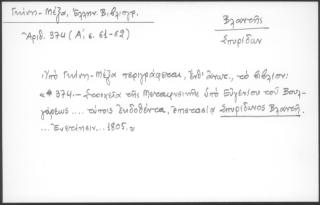 Γκίνη - Μέξα, Ἑλλην. Βιβλιογρ.
Ἀριθ. 374 (Α', σ. 61-62)
Βλαντῆς
Σπυρίδων
Ὑπὸ Γκίνη-Μέξα περιγράφεται, ἔνθ' ἀνωτ., τὸ βιβλίον:
«* 374.- Στοιχεῖα τῆς Μεταφυσικῆς ὑπὸ Εὐγενίου τοῦ Βουλ-
γάρεως .... τύποις ἐκδοθέντα, ἐπιστασίᾳ Σπυρίδωνος Βλαντῆ.
... Ἐνετίησιν... 1805.»